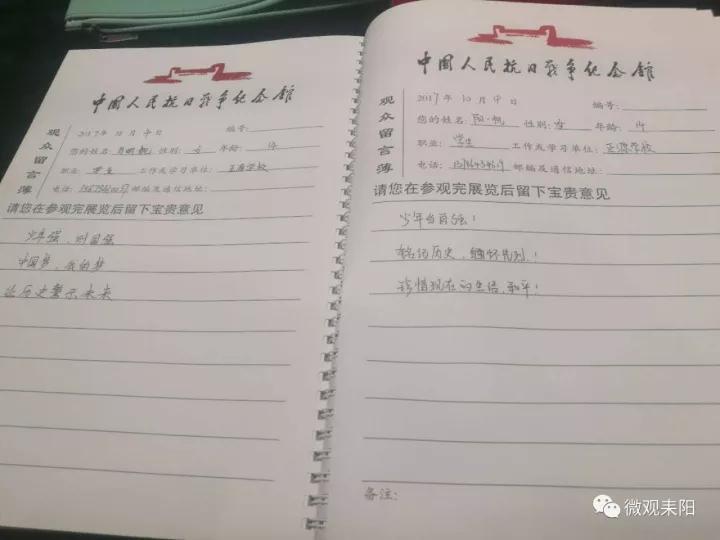 中国人民抗日战争纪念馆
观众留言簿
2017年10月4日 编号:
您的姓名: 性别:女 年龄:
职业:学生 工作或学习单位:正源学校
电话: 邮编及通信地址:
请您在参观完展览后留下宝贵意见
少年强,则国强
中国梦,我的梦
让历史警示未来
中国人民抗日战争纪念馆
观众留言簿
2017年10月4日 编号:
您的姓名: 性别:女 年龄:14
职业:学生 工作或学习单位:正源学校
电话: 邮编及通信地址:
请您在参观完展览后留下宝贵意见
少年当自强!
铭记历史,缅怀先烈!
珍惜现在的生活,和平!
备注:
微观耒阳